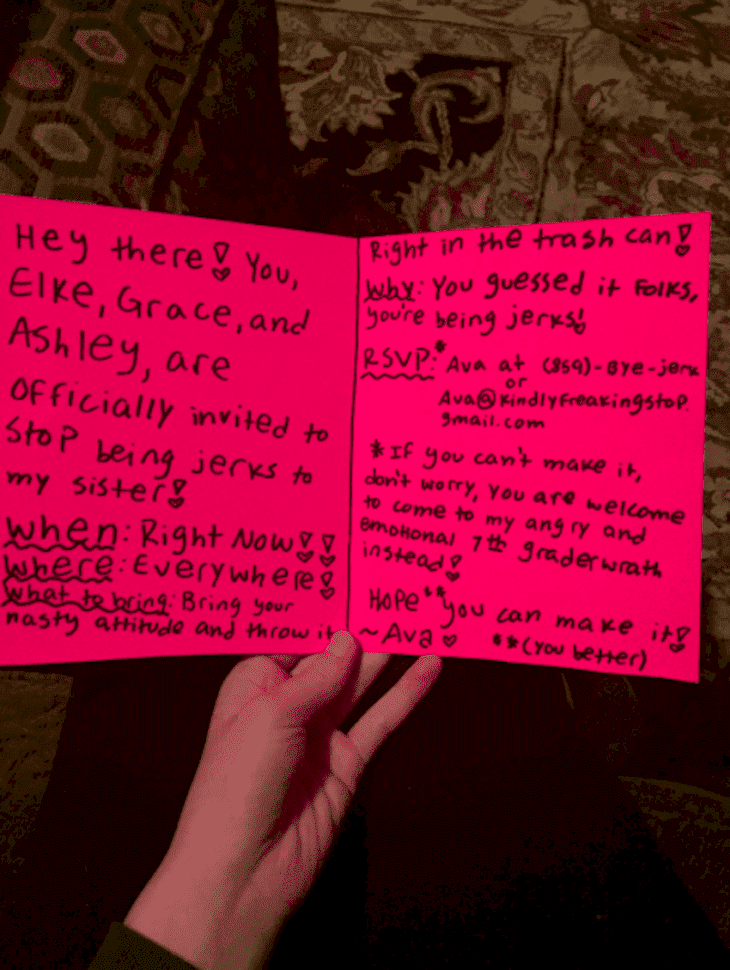 Hey there! You,
Elke, Grace, and
Ashley, are
officially invited to
stop being jerks to
my sister!
When: Right Now!!
Where: Everywhere!
What to bring: Bring your
nasty attitude and throw it
Right in the trash can!
Why: You guessed it folks,
you're being jerks!
RSVP:* Ava at (859)-Bye-jerk
or
Ava@kindlyfreakingstop.
gmail.com
*If you can't make it,
don't worry, you are welcome
to come to my angry and
emotional 7th grader wrath
instead!
Hope**you can make it!
~Ava **(you better)